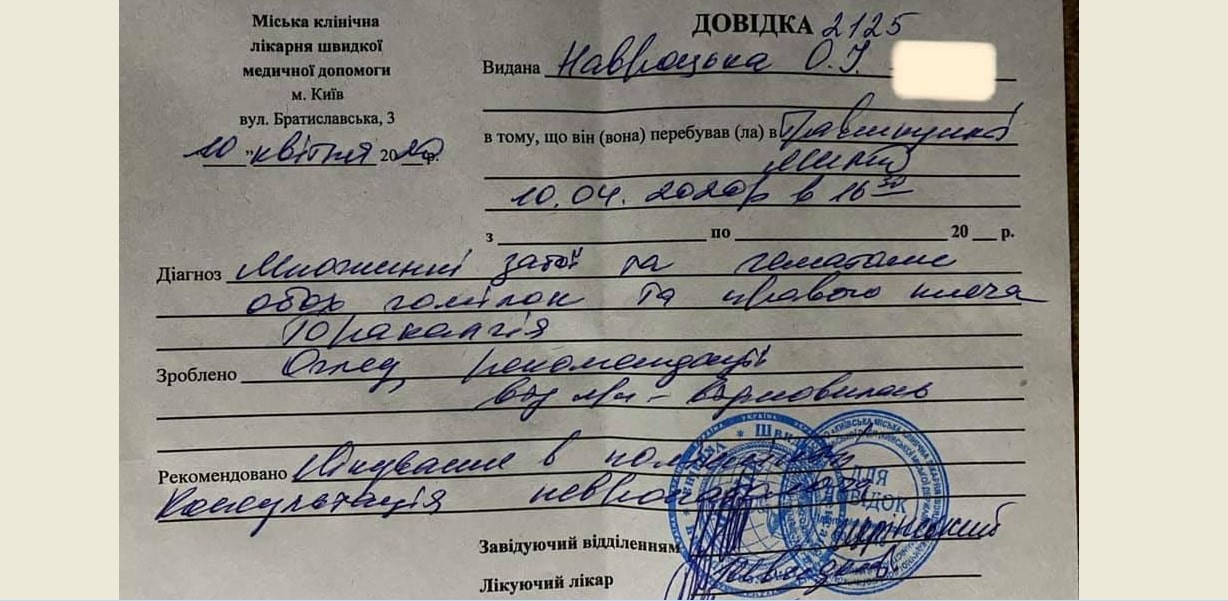 Міська клінічна
лікарня швидкої
медичної допомоги
м. Київ
вул. Братиславська, 3
10 " квітня 2020 р.
ДОВІДКА 2125
Видана Навроцька О.І.
в тому, що він (вона) перебував (ла) в
10.04.2020р в 16 30
з по 20 р.
Діагноз Множинні забої та гематоми
обох гомілок та правого плеча
Торакалгія
Зроблено Огляд рекомендації
від - відмовилась
Рекомендовано Лікування в поліклініці
Консультація невропатолога
Завідуючий відділенням
Лікуючий лікар
ДЛЯ
ДОВІДОК